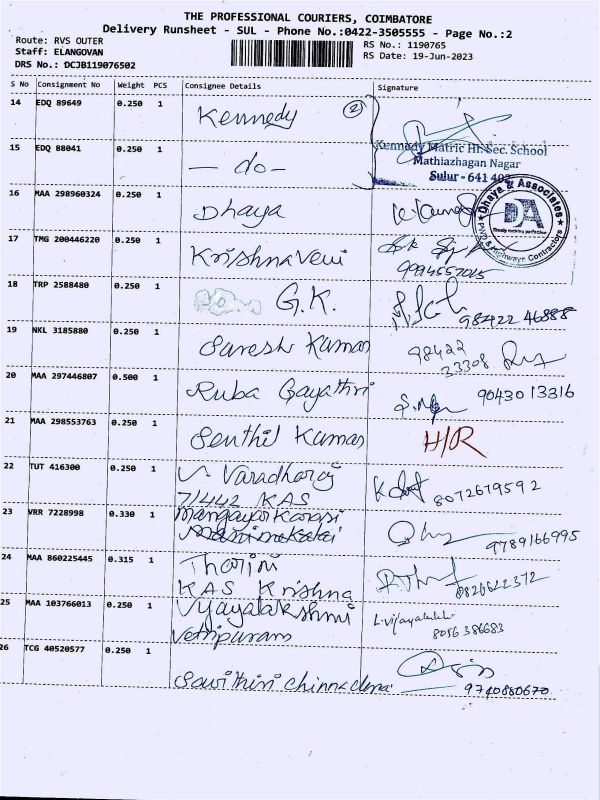 THE PROFESSIONAL COURIERS, COIMBATORE
Delivery Runsheet - SUL - Phone No.:0422-3505555 - Page No.:2
Route: RVS OUTER
RS No.: 1190765
Staff: ELANGOVAN
RS Date: 19-Jun-2023
DRS No.: DCJB119076502
S No Consignment No Weight PCS Consignee Details Signature
14 EDQ 89649 0.250 1 Kennedy 2
15 EDQ 88041 0.250 1 - do -
Kennedy Matric Hr. Sec. School
Mathiazhagan Nagar
Sulur - 641 402
16 MAA 298960324 0.250 1 Dhaya
Dhaya & Associates
DA
PWD & Highways Contractors
17 TMG 200446220 0.250 1 Krishnaveni
9994557015
18 TRP 2588480 0.250 1 G.K. 98422 46888
19 NKL 3185880 0.250 1 Suresh Kumar 98422
33308
20 MAA 297446807 0.500 1 Ruba Gayathri 90430 13316
21 MAA 298553763 0.250 1 Senthil Kumar H/R
22 TUT 416300 0.250 1 V. Varadharaj 8072679592
7/442 KAS
23 VRR 7228998 0.330 1 Mangayarkarasi
Manimekalai 9789166995
24 MAA 860225445 0.315 1 Tharini
KAS Krishna
25 MAA 103766013 0.250 1 Vijayalakshmi L.vijayalakshmi
Vetripuram 8056 386683
26 TCG 40520577 0.250 1 Savithiri 9740880670